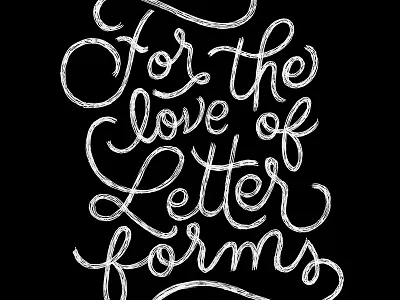 For the
love of
Letter
forms